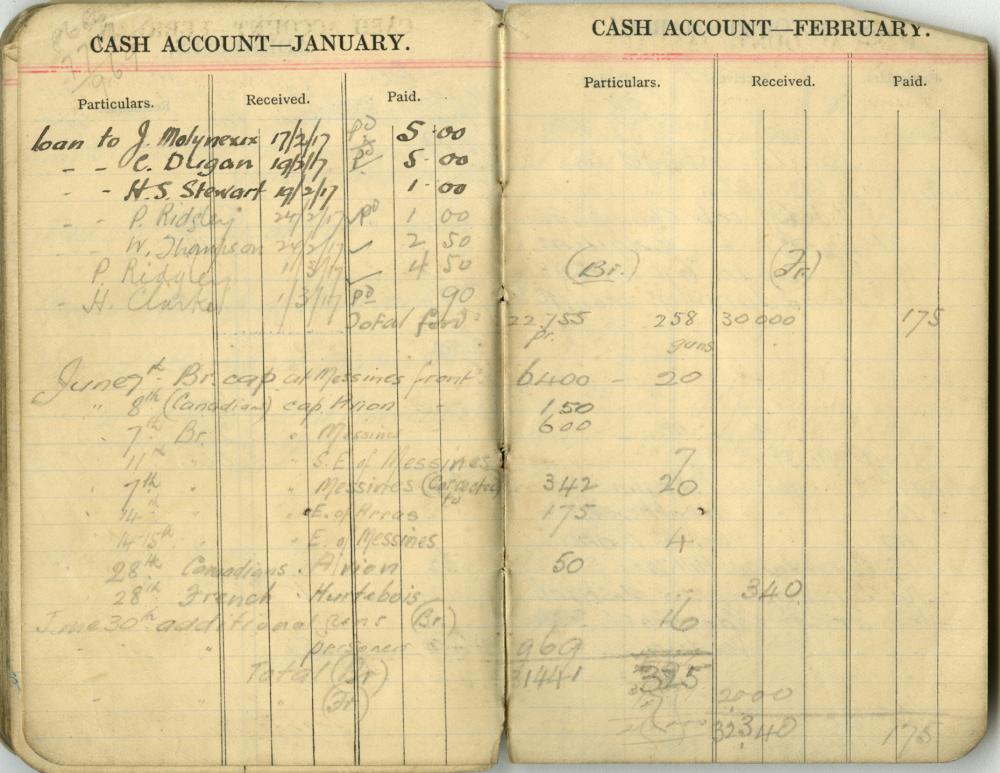 CASH ACCOUNT—JANUARY.
Particulars. Received. Paid.
loan to J. Molyneux 17/2/17 pd 5 00
- - C. Dugan 19/2/17 pd 5 00
- - H.S. Stewart 19/2/17 1 00
- P. Ridgley 24/2/17 pd 1 00
- W. Thompson 24/2/17 2 50
P. Ridgley 1/3/17 4 50
- H. Clarke 1/3/17 pd 90
CASH ACCOUNT—FEBRUARY.
Particulars. Received. Paid.
(Br.) (Fr.)
Total ford 22,755 258 30000 175
pr. guns
June 7th Br. cap. at Messines front 6400 - 20
" 8th (Canadians) cap. Avion - 150
7th Br. " Messines 600
11th " S.E. of Messines 7
7th " Messines (Corrected to) 342 20
14th " E. of Arras 175
14 15th " E. of Messines 4
28th Canadians. Avion 50
28th French . Hurtebois 340
June 30th additional guns (Br) 16
" prisoners 969
Total (Br) 31441 325
" (Fr) 2000
32340 175